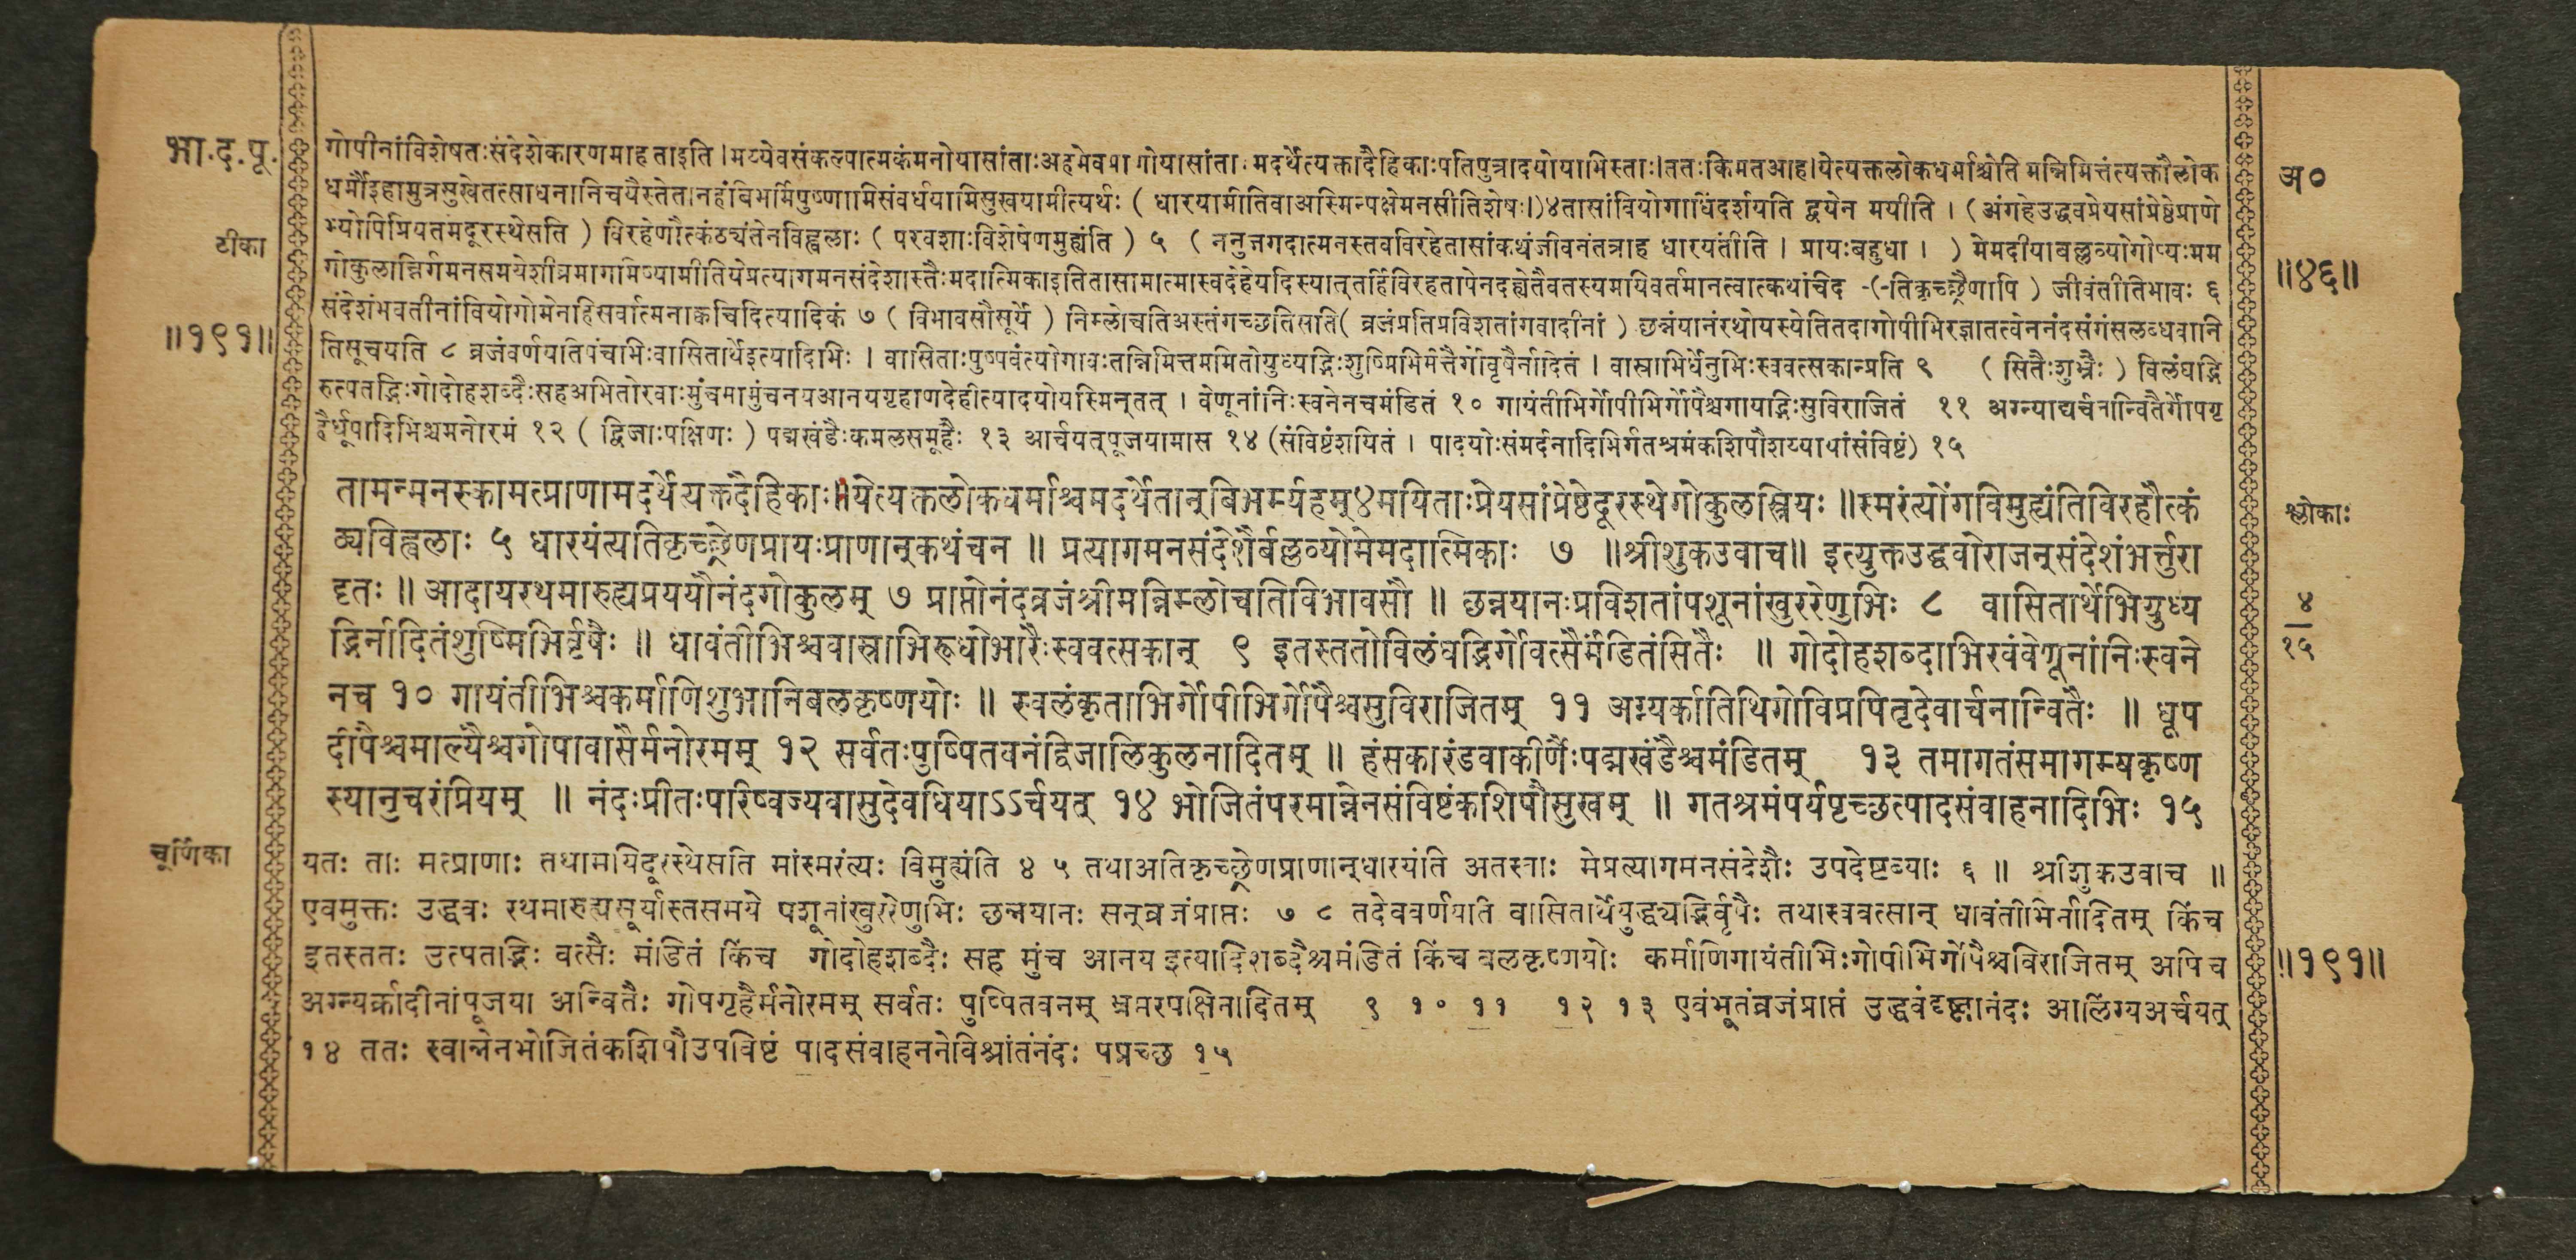 भा.द.पू.
टीका
॥१९१॥
गोपीनांविशेषतःसंदेशेकारणमाह ताइति । मय्येवसंकल्पात्मकंमनोयासांताःअहमेवप्राणोयासांता. मदर्थेत्यक्तादैहिकाःपतिपुत्रादयोयाभिस्ताः।ततःकिमतआह।येत्यक्तलोकधर्माश्चेति मन्निमित्तंत्यक्तौलोक
धर्मौइहामुत्रसुखेतत्साधनानिचयैस्तेतानहंबिभर्मिपुष्णामिसंवर्धयामिसुखयामीत्यर्थः ( धारयामीतिवाअस्मिन्पक्षेमनसीतिशेषः।)४तासांवियोगाधिंदर्शयति द्वयेन मयीति । (अंगहेउद्धवप्रेयसांप्रेष्ठेप्राणे
भ्योपिप्रियतमदूरस्थेसति ) विरहेणौत्कंठ्यंतेनविह्वलाः ( परवशाःविशेषेणमुह्यंति ) ५ ( ननुजगदात्मनस्तवविरहेतासांकथंजीवनंतत्राह धारयंतीति । प्रायःबहुधा । ) मेमदीयाबल्लव्योगोप्यःमम
गोकुलान्निर्गमनसमयेशीघ्रमागमिष्यामीतियेप्रत्यागमनसंदेशास्तैःमदात्मिकाइतितासामात्मास्वदेहेयदिस्यात्तर्हिविरहतापेनदह्येतैवतस्यमयिवर्तमानत्वात्कथांचिद -(-तिकृच्छ्रेणापि ) जीवंतीतिभावः ६
संदेशंभवतीनांवियोगोमेनहिसर्वात्मनाक्वचिदित्यादिकं ७ ( विभावसौसूर्ये ) निम्लोचतिअस्तंगच्छतिसति( व्रजंप्रतिप्रविशतांगवादीनां ) छन्नंयानंरथोयस्येतितदागोपीभिरज्ञातत्वेननंदसंगंसलब्धवानि
तिसूचयति ८ व्रजंवर्णयतिपंचाभिःवासितार्थेइत्यादिभिः । वासिताःपुष्पवंत्योगावःतन्निमित्तमभितोयुध्यद्भिःशुष्मिभिर्मत्तैर्गोवृषैर्नादितं । वास्राभिर्धेनुभिःस्ववत्सकान्प्रति ९ ( सितैःशुभ्रैः ) विलंघद्भि
रुत्पतद्भिःगोदोहशब्दैःसहअभितोरवाःमुंचमामुंचनयआनयगृहाणदेहीत्यादयोयस्मिन्तत् । वेणूनांनिःस्वनेनचमंडितं १० गायंतीभिर्गोपीभिर्गोपैश्चगायद्भिःसुविराजितं ११ अग्न्याद्यर्चनान्वितैर्गोपगृ
हैर्धूपादिभिश्चमनोरमं १२ ( द्विजाःपक्षिणः ) पद्मखंडैःकमलसमूहैः १३ आर्चयत्पूजयामास १४ (संविष्टंशयितं । पादयोःसंमर्दनादिभिर्गतश्रमंकशिपौशय्यायांसंविष्टं) १५
तामन्मनस्कामत्प्राणामदर्थेत्यक्तदैहिकाः॥येत्यक्तलोकधर्माश्चमदर्थेतान्बिभर्म्यहम्४मयिताःप्रेयसांप्रेष्ठेदूरस्थेगोकुलस्त्रियः ॥स्मरंत्योंगविमुह्यंतिविरहौत्कं
ठ्यविह्वलाः ५ धारयंत्यतिकृच्छ्रेणप्रायःप्राणान्कथंचन ॥ प्रत्यागमनसंदेशैर्बल्लव्योमेमदात्मिकाः ७ ॥श्रीशुकउवाच॥ इत्युक्तउद्धवोराजन्संदेशंभर्त्तुरा
दृतः ॥ आदायरथमारुह्यप्रययौनंदगोकुलम् ७ प्राप्तोनंदव्रजंश्रीमन्निम्लोचतिविभावसौ ॥ छन्नयानःप्रविशतांपशूनांखुररेणुभिः ८ वासितार्थेभियुध्य
द्भिर्नादितंशुष्मिभिर्वृषैः ॥ धावंतीभिश्चवास्राभिरूधोभारैःस्ववत्सकान् ९ इतस्ततोविलंघद्भिर्गोवत्सैर्मंडितंसितैः ॥ गोदोहशब्दाभिरवंवेणूनांनिःस्वने
नच १० गायंतीभिश्चकर्माणिशुभानिबलकृष्णयोः ॥ स्वलंकृताभिर्गोपीभिर्गोपैश्चसुविराजितम् ११ अग्न्यर्कातिथिगोविप्रपितृदेवार्चनान्वितैः ॥ धूप
दीपैश्चमाल्यैश्चगोपावासैर्मनोरमम् १२ सर्वतःपुष्पितवनंद्विजालिकुलनादितम् ॥ हंसकारंडवाकीर्णैःपद्मखंडैश्चमंडितम् १३ तमागतंसमागम्यकृष्ण
स्यानुचरंप्रियम् ॥ नंदःप्रीतःपरिष्वज्यवासुदेवधियाऽऽर्चयत् १४ भोजितंपरमान्नेनसंविष्टंकशिपौसुखम् ॥ गतश्रमंपर्यपृच्छत्पादसंवाहनादिभिः १५
चूर्णिका
यतः ताः मत्प्राणाः तथामयिदूरस्थेसति मांस्मरंत्यः विमुह्यंति ४ ५ तथाअतिकृच्छ्रेणप्राणान्धारयंति अतस्ताः मेप्रत्यागमनसंदेशैः उपदेष्टव्याः ६ ॥ श्रीशुकउवाच ॥
एवमुक्तः उद्धवः रथमारुह्यसूर्यास्तसमये पशूनांखुररेणुभिः छन्नयानः सन्व्रजंप्राप्तः ७ ८ तदेववर्णयति वासितार्थेयुद्ध्यद्भिर्वृषैः तथास्ववत्सान् धावंतीभिर्नादितम् किंच
इतस्ततः उत्पतद्भिः वत्सैः मंडितं किंच गोदोहशब्दैः सह मुंच आनय इत्यादिशब्दैश्चमंडितं किंच बलकृष्णयोः कर्माणिगायंतीभिःगोपीभिर्गोपैश्चविराजितम् अपिच
अग्न्यर्कादीनांपूजया अन्वितैः गोपगृहैर्मनोरमम् सर्वतः पुष्पितवनम् भ्रमरपक्षिनादितम् ९ १० ११ १२ १३ एवंभूतंव्रजंप्राप्तं उद्धवंदृष्ट्वानंदः आलिंग्यअर्चयत्
१४ ततः स्वान्नेनभोजितंकशिपौउपविष्टं पादसंवाहननेविश्रांतंनंदः पप्रच्छ १५
अ०
॥४६॥
श्लोकाः
४
१५
॥१९१॥